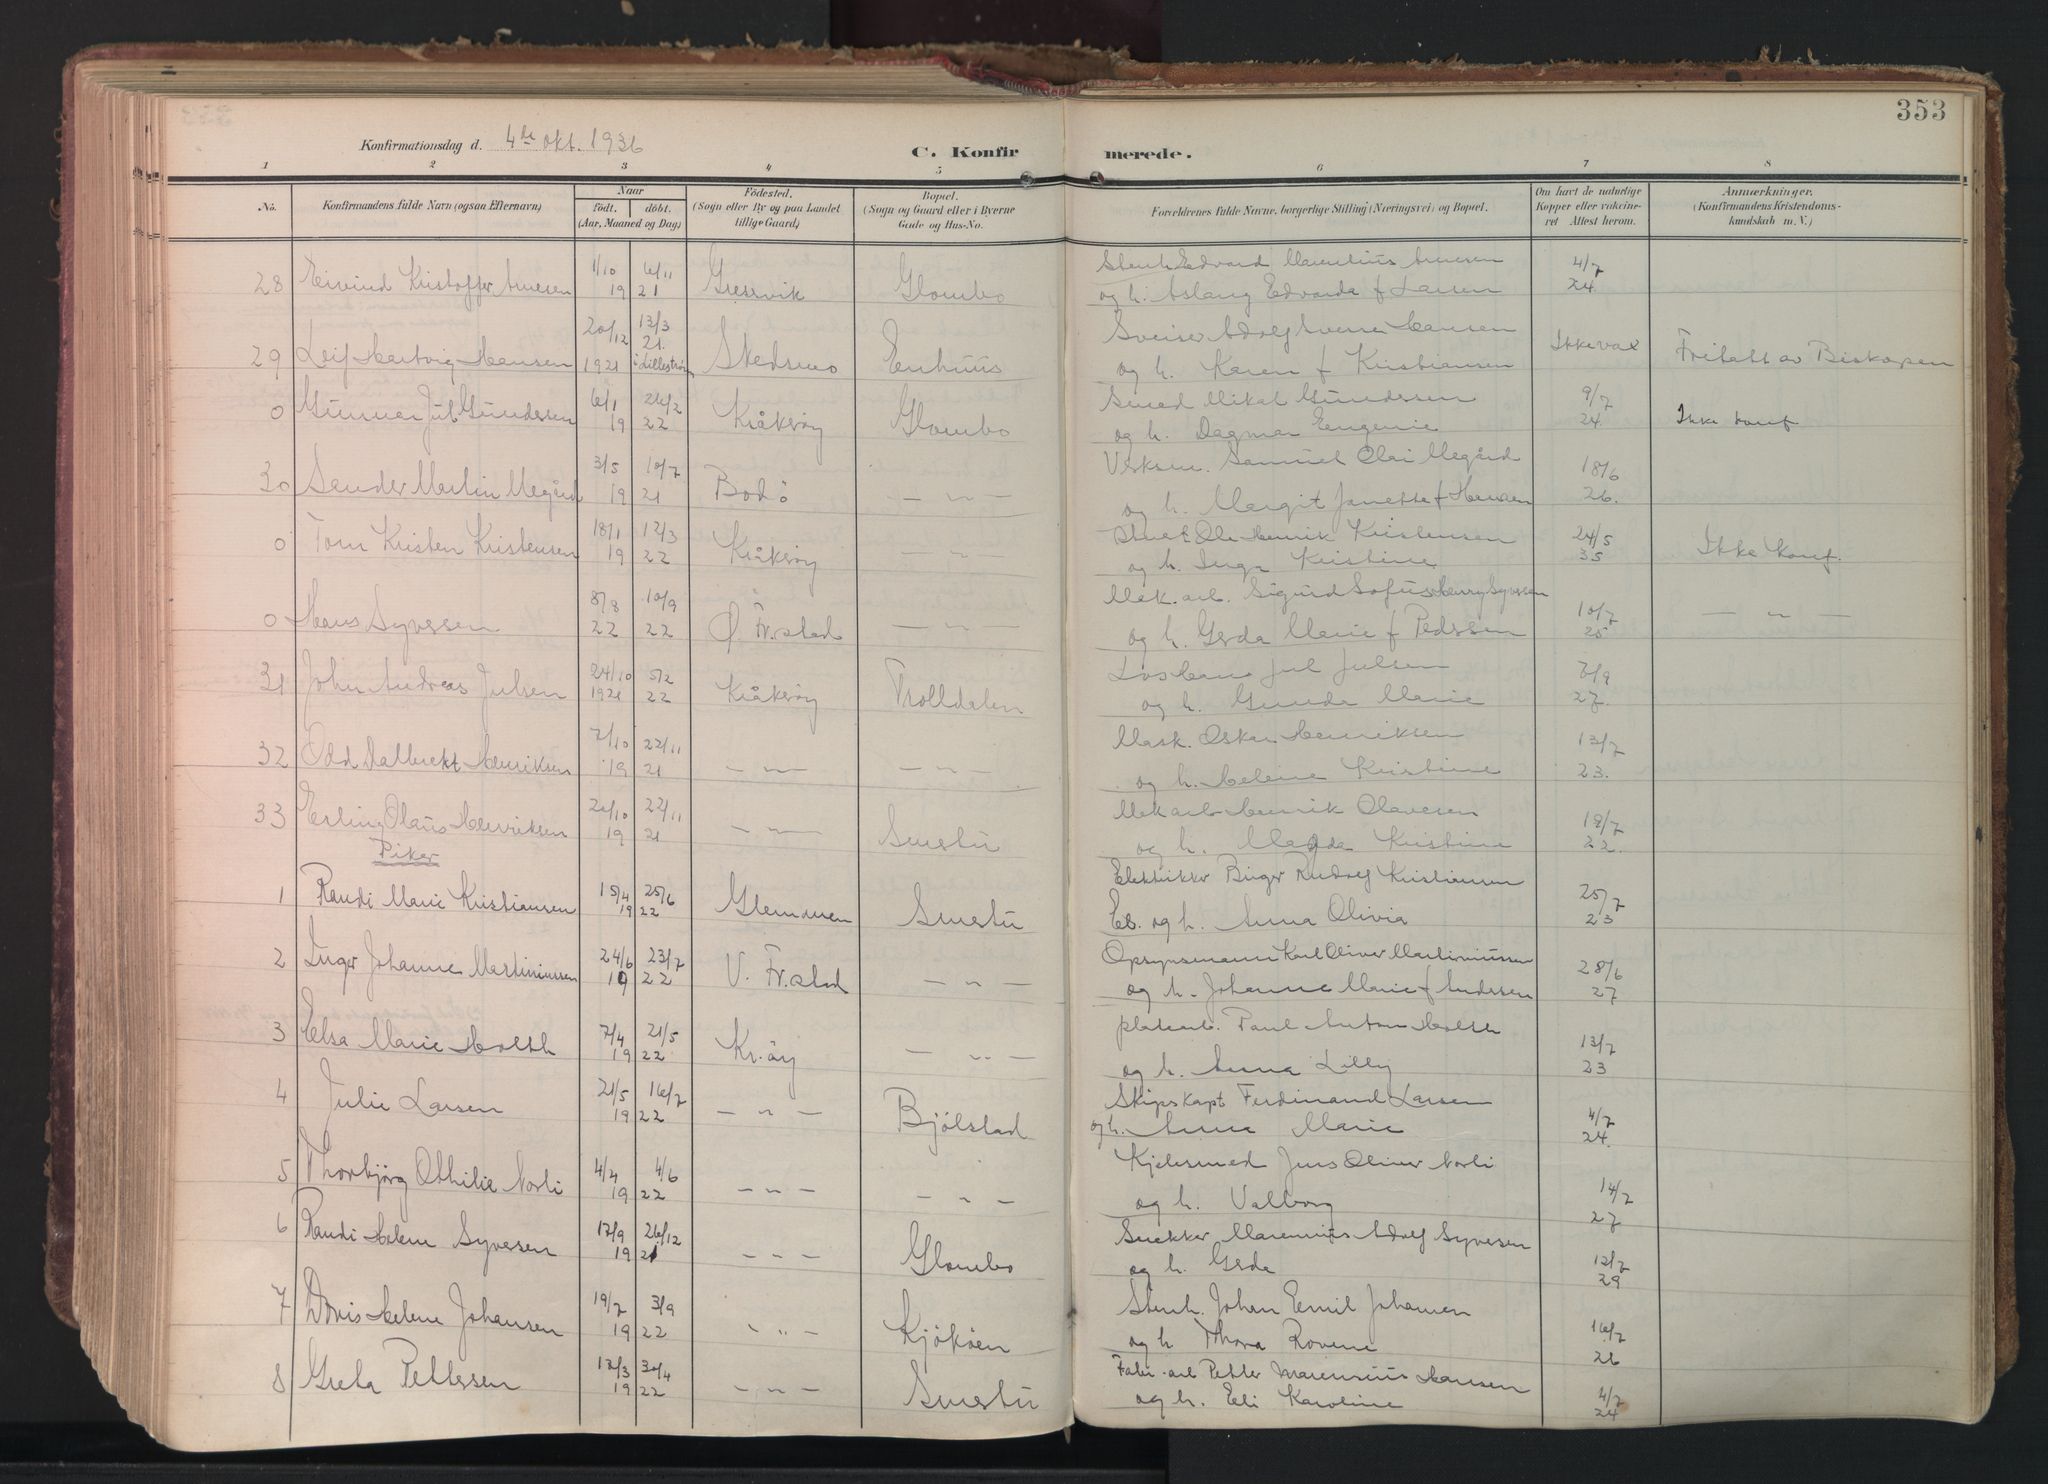 353
Konfirmationsdag d. 4de okt. 1936
C. Konfirmerede.
1 2 3 4 5 6 7 8
No.
Konfirmandens fulde Navn (ogsaa Efternavn).
Naar
födt. döbt.
(Aar, Maaned og Dag)
Födested.
(Sogn eller By og paa Landet tillige Gaard)
Bopæl.
(Sogn og Gaard eller i Byerne Gade og Hus-No.
Forældrenes fulde Navne, borgerlige Stilling (Næringsvei) og Bopæl.
Om havt de naturlige Kopper eller vakcineret Attest herom.
Anmærkninger.
(Konfirmandens Kristendomskundskab m. V.)
28 Eivind Kristoffer Arnesen 1/10 19 6/11 21 Gressvik Glombo
Edvard Marentius Arnesen 4/7 24
og h. Aslaug Edvarda f Larsen
29 Leif Hartvig Hansen 20/12 1921 13/3 21. i Lilleström Skedsmo Enhuus
Sveiser Adolf Hansen Ikke vax Fritatt av Biskopen
og h. Karen f Kristiansen
0 Gunnar Jul Gundersen 6/1 19 26/2 22 Kråkröy Glombo
Smed Mikal Gundersen 9/7 24. Ikke konf
og h. Dagmar Eugenie
30 Sander Martin Megård 3/5 19 10/7 21 Bodö — " —
Samuel Olai Megård 18/6 26.
og h. Margit Janette f Hansen
0 Tom Kristen Kristensen 18/1 19 12/3 22 Kråkröy "
Ole Henrik Kristensen 24/5 35 Ikke konf.
og h. Inga Kristine
0 Hans Syversen 8/8 22 10/9 22 Ö. Fr.stad — " —
Mek. arb. Sigurd Sofus Henry Syversen 10/7 25 — " —
og h. Gerda Marie f Pedersen
31 John Andreas Julsen 24/10 1921 5/2 22 Kråkröy Trolldalen
Jul Julsen 27.
og h. Gunda Marie
32 Odd Henriksen 7/10 19 22/11 21 — " — — " —
Mask. Oskar Henriksen 13/7 23.
og h. Helene Kristine
33 Erling Olaus Henriksen 19 22/11 21 — " — Smertu
Mek arb Henrik Olavesen 18/7 22.
og h. Magda Kristine
Piker
1 Randi Marie Kristiansen 15/4 19 25/6 22 Glemmen Smertu
Elektrikker Birger Rudolf Kristiansen 25/7 23
og h. Anna Olivia
2 Inger Johanne Martiniussen 24/6 19 23/7 22 V. Fr.stad — " —
Opsynsmann Karl Oliver Martiniussen 28/6 27
og h. Johanne Marie f Andersen
3 Elsa Marie Holth 7/4 19 21/5 22 Kr.öy — " —
platearb. Paul Anton Holth 13/7 23
og h. Anna Lilly
4 Julie Larsen 21/5 19 16/7 22 — " — Bjölstad
Skipskapt Ferdinand Larsen 4/7 24.
og h. Anna Marie
5 Thorbjörg Othilie Norli 4/4 19 4/6 22 — " — — " —
Kjelesmed Jens Oliver Norli 14/7 27
og h. Valborg
6 Randi Helene Syversen 17/9 19 26/12 21 — " — Glombo
Snekker Marennius Adolf Syversen 12/7 29
og h. Gerda
7 Doris Helene Johansen 19/7 19 3/9 22 " — Kjököen
Stenh. Johan Eemil Johansen 16/7 26
og h Thora Rovene
8 Greta Pettersen 13/3 19 30/4 22 — " — Smertu
Fabr. arb Petter Marensius Hansen 4/7 24
og h. Eli Karoline